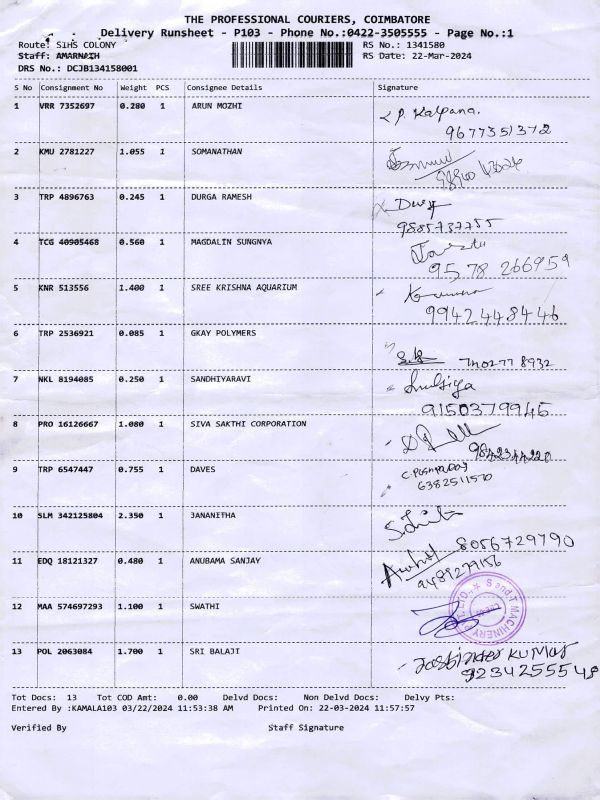 THE PROFESSIONAL COURIERS, COIMBATORE
Delivery Runsheet - P103 - Phone No.:0422-3505555 - Page No.:1
Route: SIHS COLONY RS No.: 1341580
Staff: AMARNATH RS Date: 22-Mar-2024
DRS No.: DCJB134158001
S No Consignment No Weight PCS Consignee Details Signature
1 VRR 7352697 0.280 1 ARUN MOZHI P. Kalpana.
9677351372
2 KMU 2781227 1.055 1 SOMANATHAN
3 TRP 4896763 0.245 1 DURGA RAMESH
9885737755
4 TCG 40905468 0.560 1 MAGDALIN SUNGNYA
9578 266959
5 KNR 513556 1.400 1 SREE KRISHNA AQUARIUM
9942448446
6 TRP 2536921 0.085 1 GKAY POLYMERS
7402778932
7 NKL 8194085 0.250 1 SANDHIYARAVI
9150379945
8 PRO 16126667 1.080 1 SIVA SAKTHI CORPORATION
9 TRP 6547447 0.755 1 DAVES
6382511570
10 SLM 342125804 2.350 1 JANANITHA
8056729790
11 EDQ 18121327 0.480 1 ANUBAMA SANJAY
9489279156
12 MAA 574697293 1.100 1 SWATHI
S and T MACHINERY
13 POL 2063084 1.700 1 SRI BALAJI Jasbinder KUMAR
9234255548
Tot Docs: 13 Tot COD Amt: 0.00 Delvd Docs: Non Delvd Docs: Delvy Pts:
Entered By :KAMALA103 03/22/2024 11:53:38 AM Printed On: 22-03-2024 11:57:57
Verified By Staff Signature